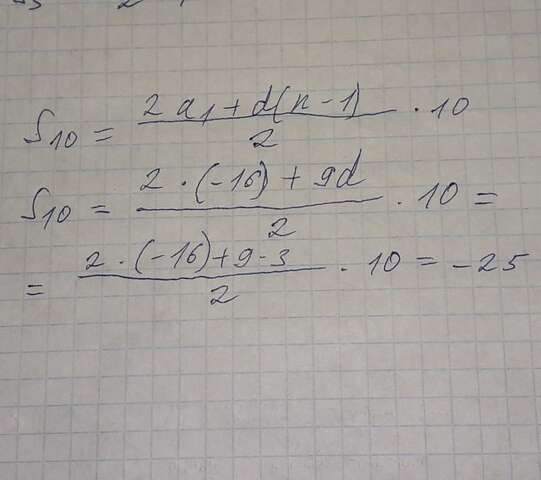 S₁₀ = (2a₁ + d(n - 1))/2 · 10
S₁₀ = (2 · (-16) + 9d)/2 · 10 =
= (2 · (-16) + 9 · 3)/2 · 10 = -25